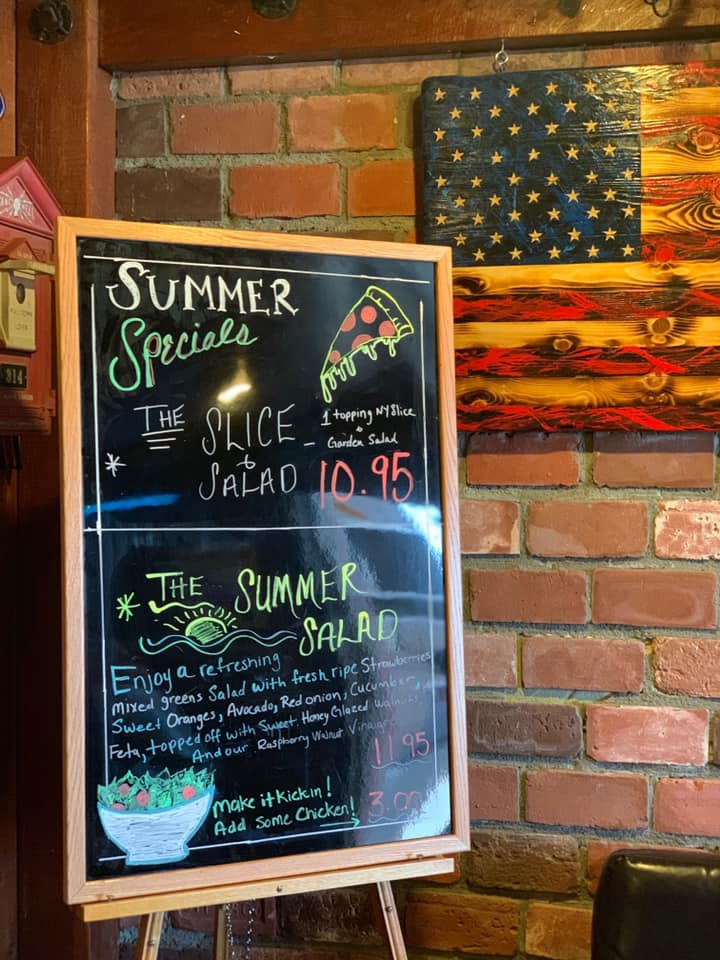 SUMMER
Specials
THE SLICE & SALAD –
1 topping NY Slice
&
Garden Salad
10.95
THE SUMMER
SALAD
Enjoy a refreshing
mixed greens Salad with fresh ripe Strawberries
Sweet Oranges, Avocado, Red onion, Cucumber,
Feta, topped off with Sweet Honey Glazed Walnuts,
And our Raspberry Walnut
11.95
Make it Kickin!
Add Some Chicken!
3.00
314